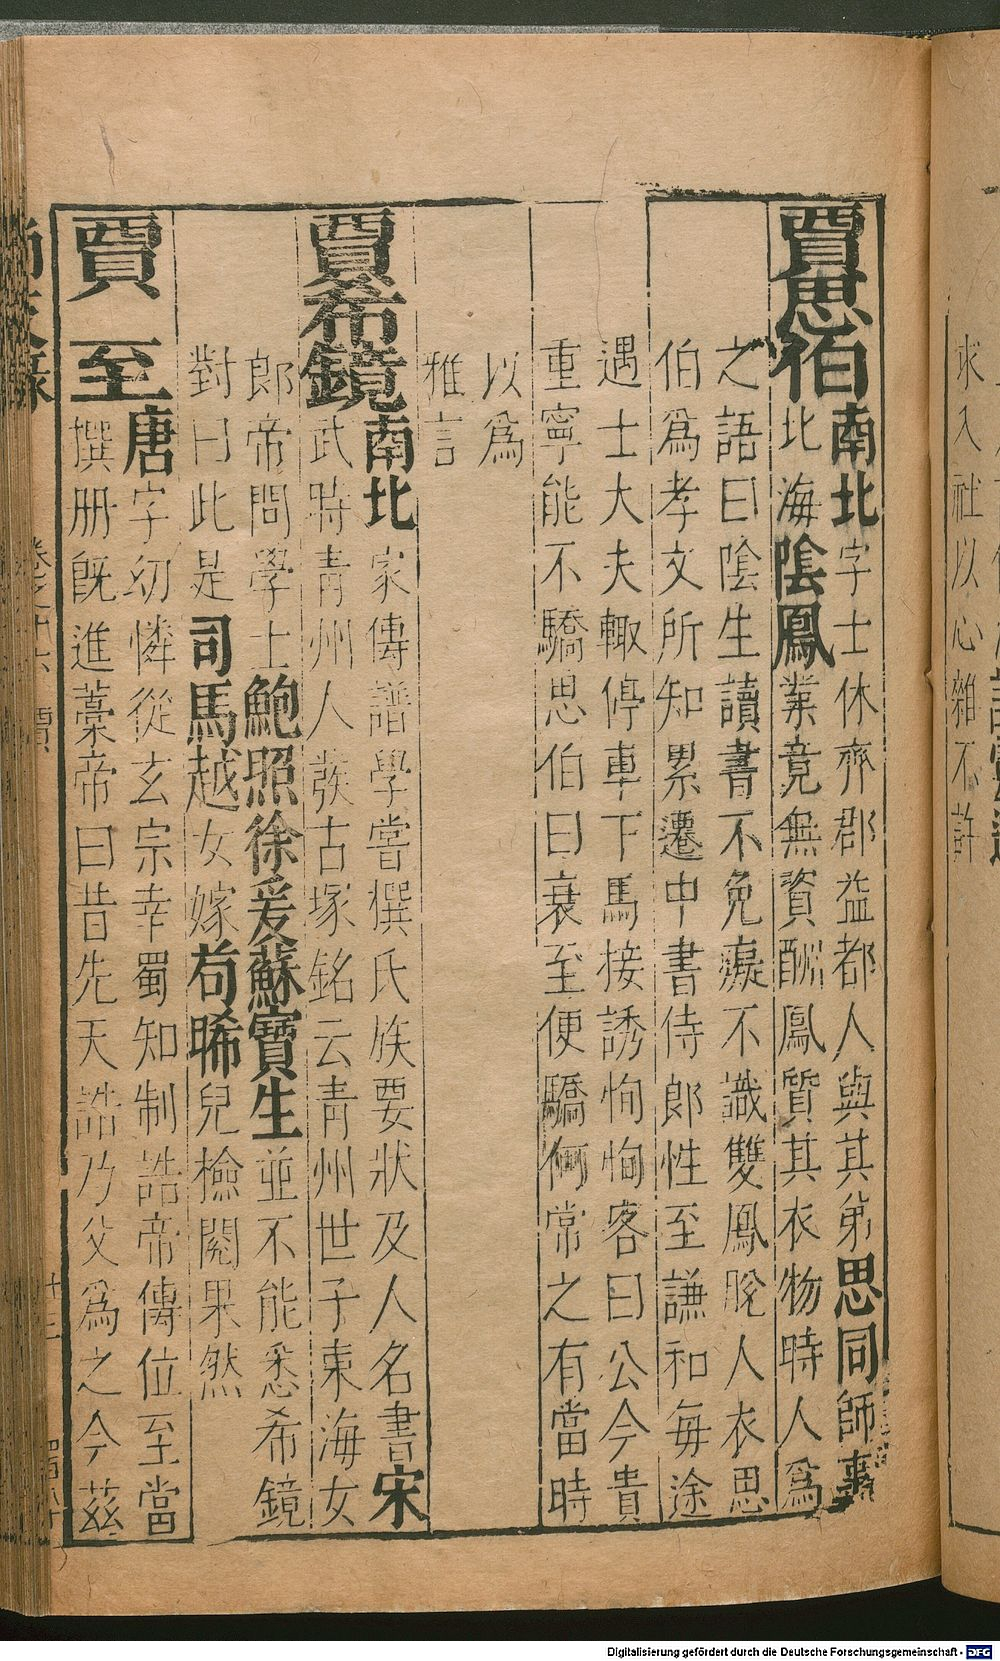 賈思伯
南北字士休齊郡益都人與其弟思同師事
北海陰鳳業竟無資酬鳳質其衣物時人爲
之語曰陰生讀書不免癡不識雙鳳脫人衣思
伯爲孝文所知累遷中書侍郎性至謙和每途
遇士大夫輙停車下馬接誘恂恂客曰公今貴
重寧能不驕思伯曰衰至便驕何常之有當時
以爲
雅言
賈希鏡
南北家傳譜學嘗撰氏族要狀及人名書宋
武時青州人發古塚銘云青州世子東海女
郎帝問學士鮑照徐爰蘇寶生並不能悉希鏡
對曰此是司馬越女嫁苟晞兒檢閱果然
賈至
唐字幼憐從玄宗幸蜀知制誥帝傳位至當
撰册旣進藁帝曰昔先天誥乃父爲之今茲
求入社以心雜不許
Digitalisierung gefördert durch die Deutsche Forschungsgemeinschaft - DFG